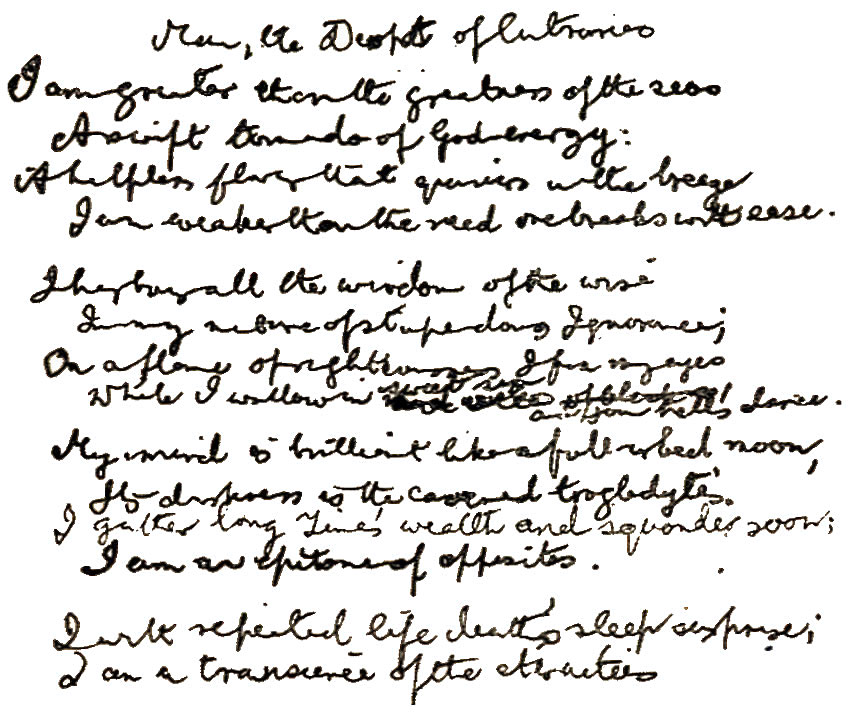 Man, the Despot of Contraries
I am greater than the greatness of the seas
A swift tornado of God-energy:
A helpless flower that quivers in the breeze
I am weaker than the reed one breaks with ease.
I harbour all the wisdom of the wise
In my nature of stupendous Ignorance;
On a flame of righteousness I fix my eyes
While I wallow in sweet sin and join hell's dance.
My mind is brilliant like a full-orbed moon,
Its darkness is the caverned troglodyte's.
I gather long Time's wealth and squander soon;
I am an epitome of opposites.
I with repeated life death's sleep surprise;
I am a transience of the eternities